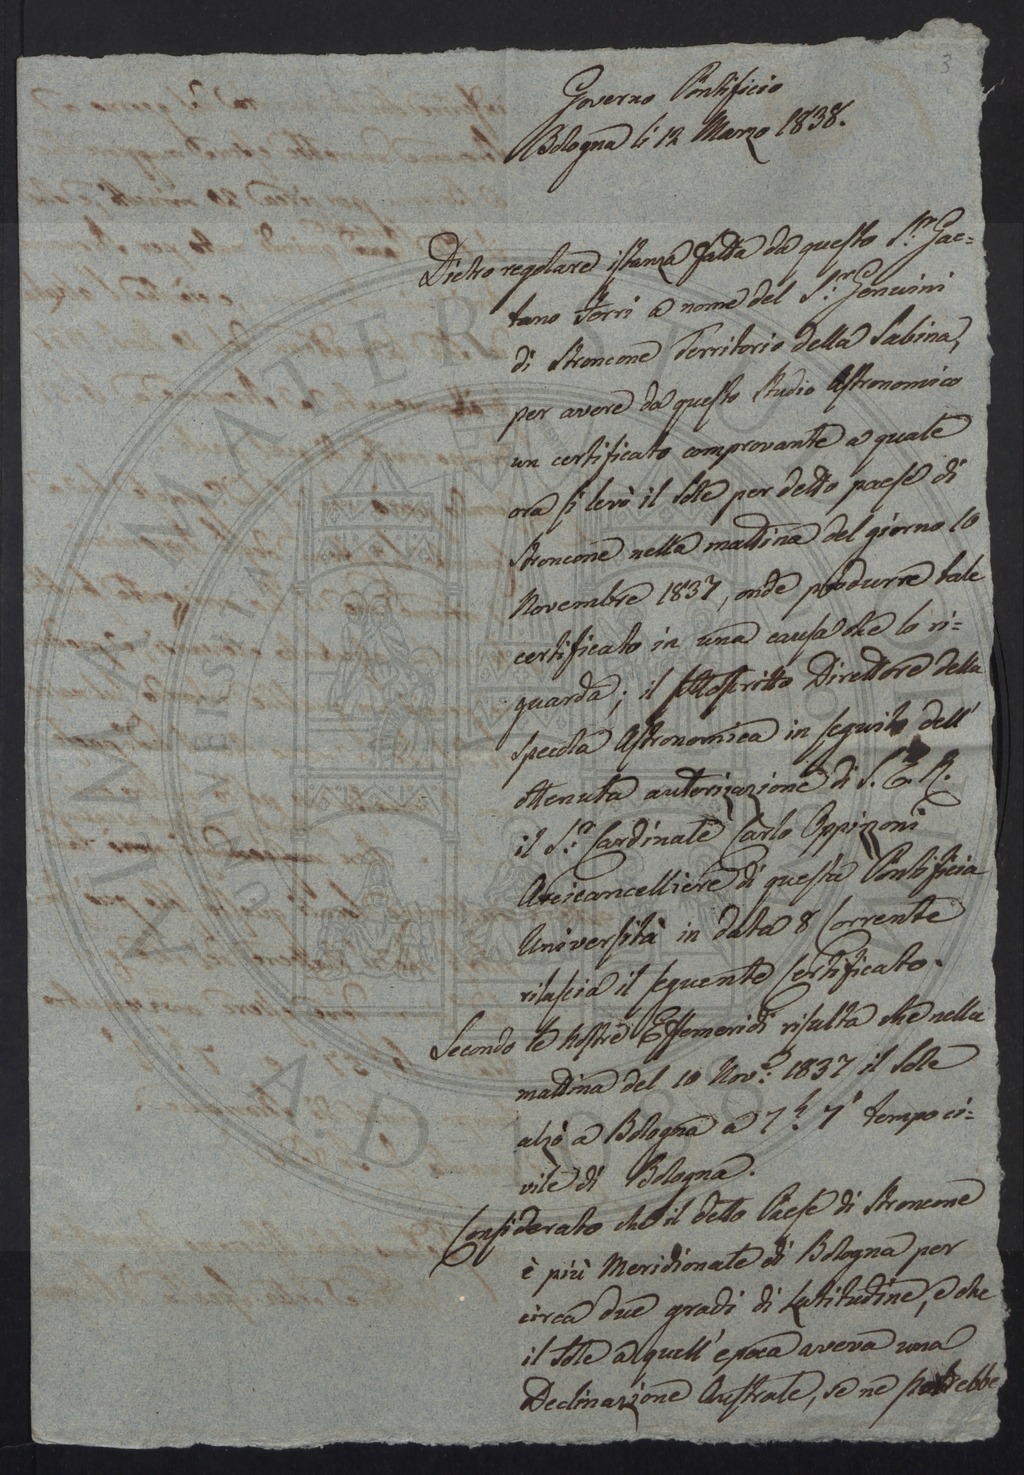 3
Governo Pontificio
Bologna li 12 Marzo 1838.
Dietro regolare istanza fatta da questo S.r Gae=
tano Forri a nome del S.r Gencini
di Stroncone Territorio della Sabina,
per avere da questo Studio Astronomico
un certificato comprovante a quale
ora si levò il Sole per detto paese di
Stroncone nella mattina del giorno 10
Novembre 1837, onde produrre tale
certificato in una causa che lo ri=
guarda; il sottoscritto Direttore della
Specola Astronomica in seguito dell'
ottenuta autorizazione di S. E. R.
il S.r Cardinale Carlo Oppizoni
Arcicancelliere di questa Pontificia
Università in data 8 Corrente
rilascia il seguente Certificato.
Secondo le nostre Effemeridi risulta che nella
mattina del 10 Nov.e 1837 il Sole
alzò a Bologna a 7.h 7' tempo ci=
vile di Bologna.
Considerato che il detto Paese di Stroncone
è più Meridionale di Bologna per
circa due gradi di Latitudine, e che
il Sole a quell'epoca aveva una
Declinazione Australe, se ne potrebbe
ALMA MATER STUDIORUM
A.D. 1088